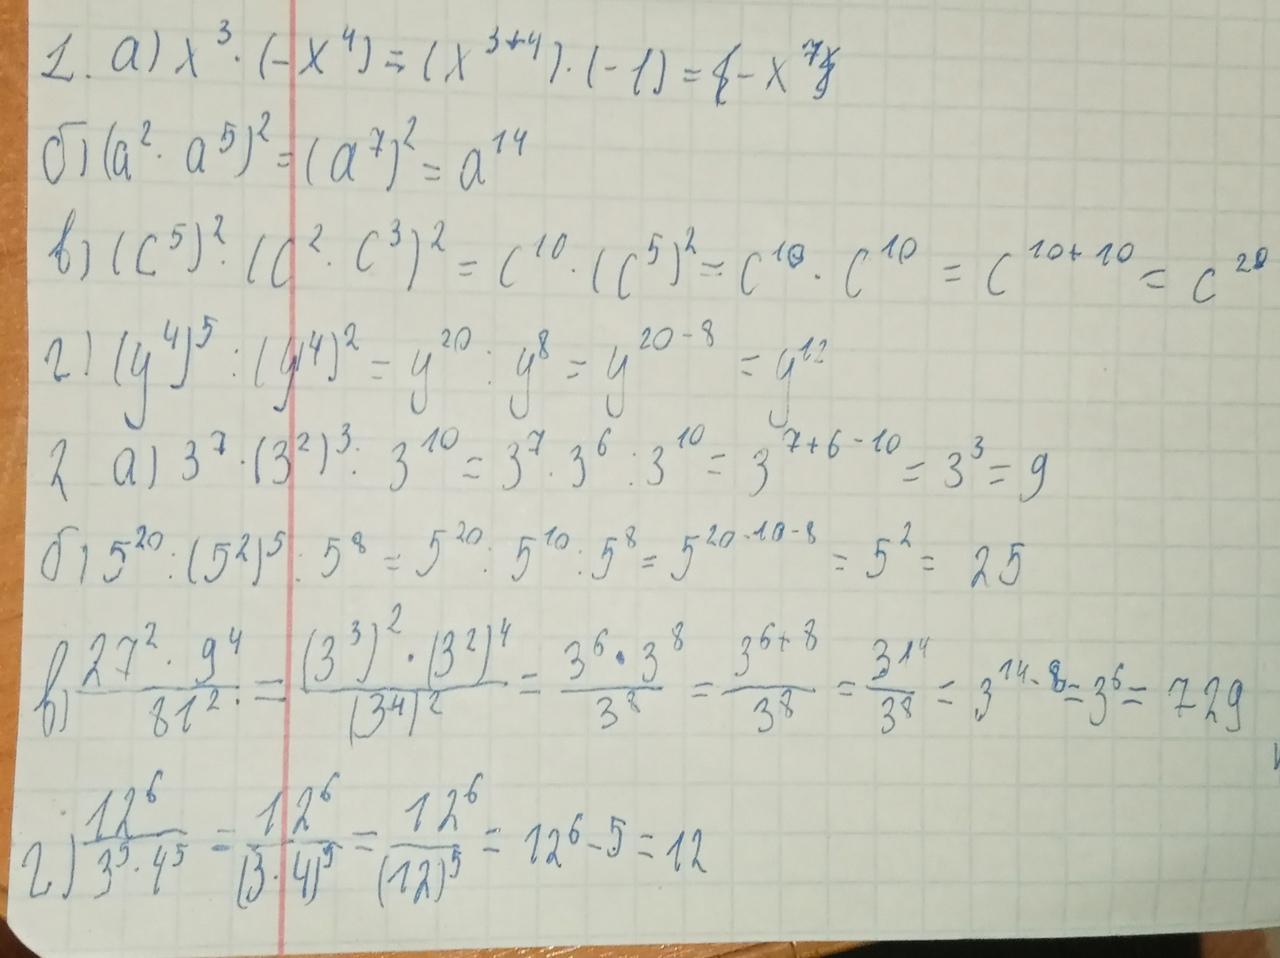 1. а) x³ · (-x⁴) = (x³⁺⁴) · (-1) = -x⁷
б) (a² · a⁵)² = (a⁷)² = a¹⁴
в) (c⁵)² · (c² · c³)² = c¹⁰ · (c⁵)² = c¹⁰ · c¹⁰ = c¹⁰⁺¹⁰ = c²⁰
г) (y⁴)⁵ : (y⁴)² = y²⁰ : y⁸ = y²⁰⁻⁸ = y¹²
2 а) 3⁷ · (3²)³ : 3¹⁰ = 3⁷ · 3⁶ : 3¹⁰ = 3⁷⁺⁶⁻¹⁰ = 3³ = 9
б) 5²⁰ : (5²)⁵ : 5⁸ = 5²⁰ : 5¹⁰ : 5⁸ = 5²⁰⁻¹⁰⁻⁸ = 5² = 25
в) 27² · 9⁴ / 81² = (3³)² · (3²)⁴ / (3⁴)² = 3⁶ · 3⁸ / 3⁸ = 3⁶⁺⁸ / 3⁸ = 3¹⁴ / 3⁸ = 3¹⁴⁻⁸ = 3⁶ = 729
г) 12⁶ / 3⁵ · 4⁵ = 12⁶ / (3 · 4)⁵ = 12⁶ / (12)⁵ = 12⁶⁻⁵ = 12